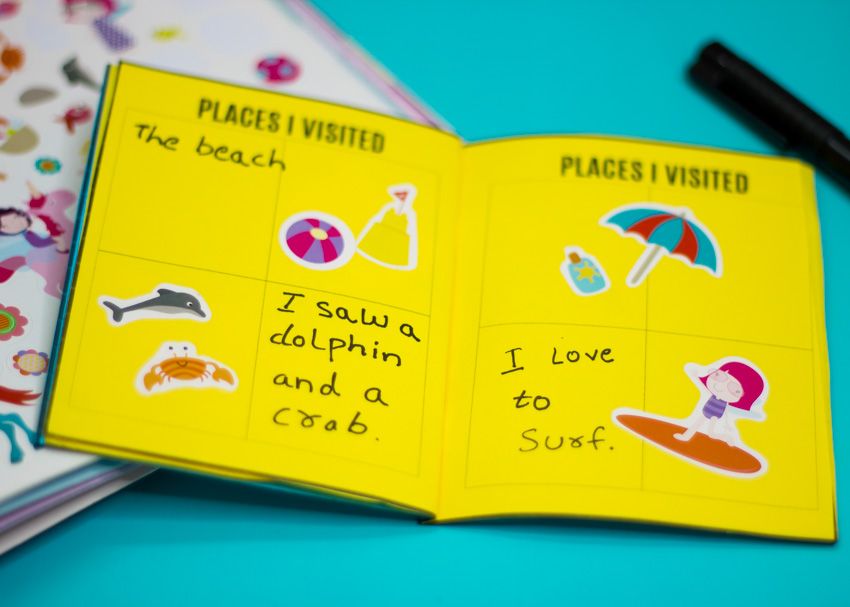 PLACES I VISITED
The beach
I saw a
dolphin
and a
crab.
PLACES I VISITED
I Love
to
Surf.